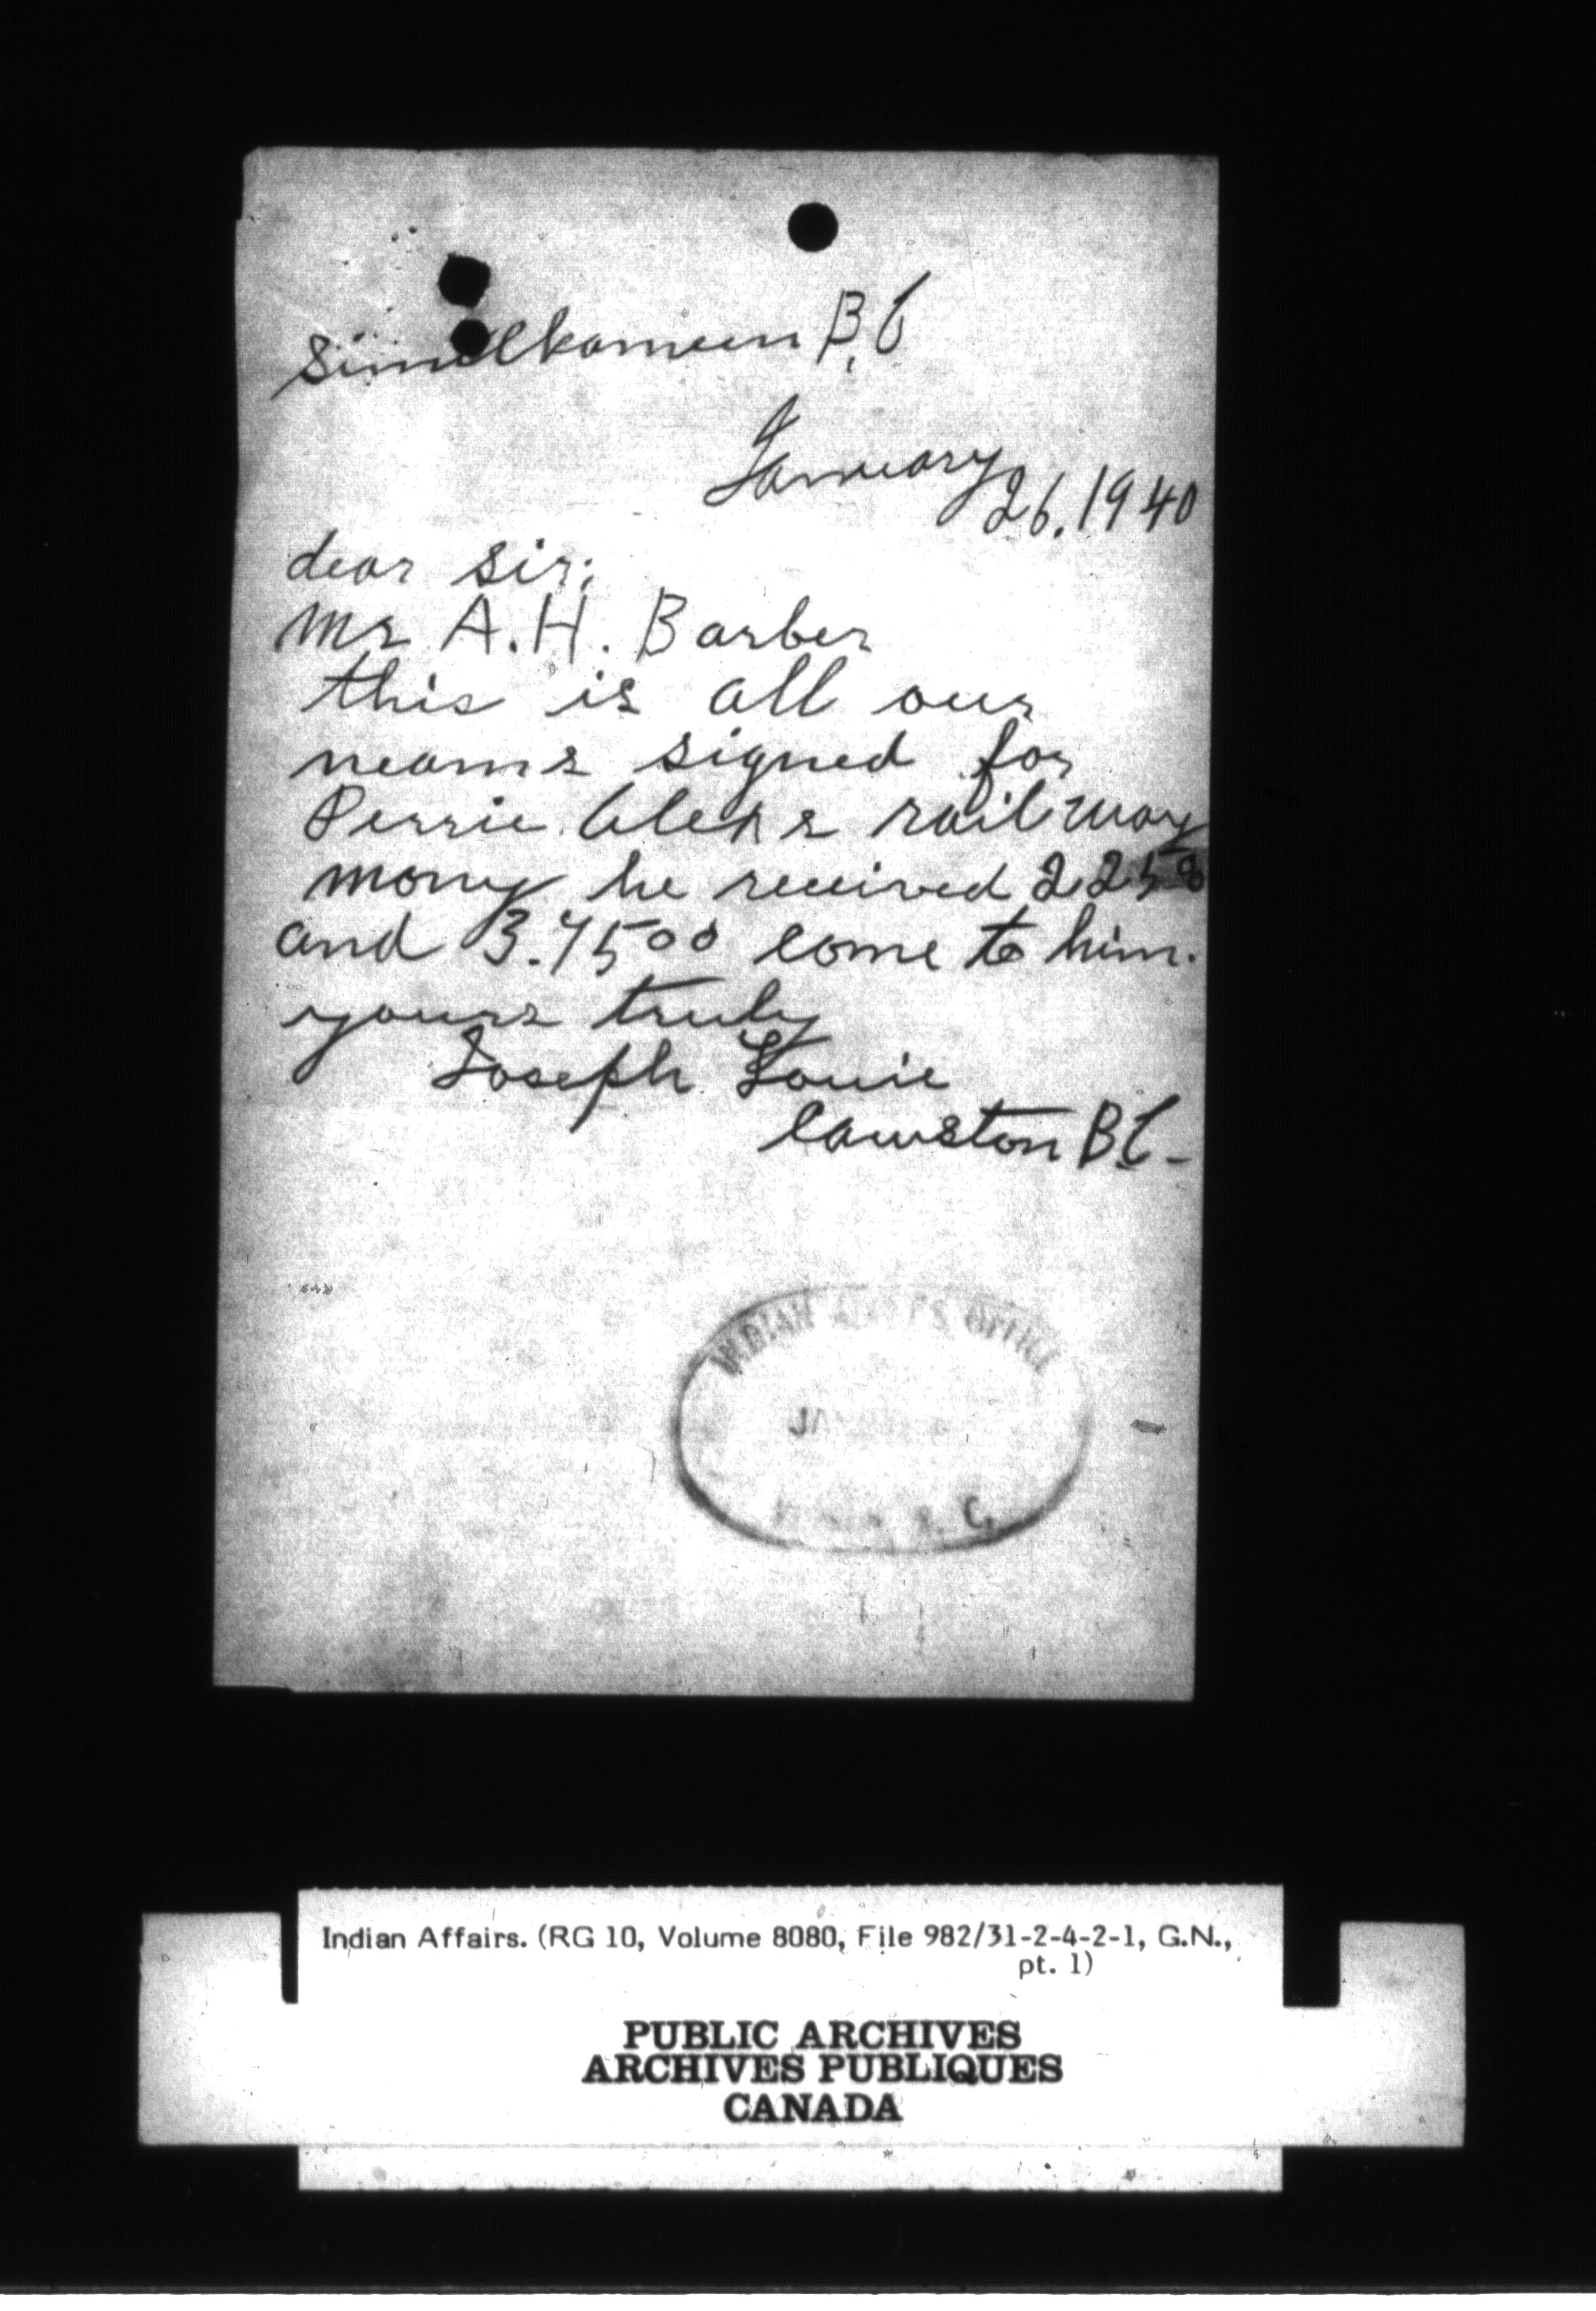 Similkameen B.C
January 26, 1940
dear sir;
Mr A.H. Barber
this is all our
neams signed for
Perrie Aleks railway
mony he received 225 00
and 3.75 00 come to him.
yours truly
Joseph Louie
Cawston B.C-
INDIAN OFFICE
B. C.
Indian Affairs. (RG 10, Volume 8080, File 982/31-2-4-2-1, G.N.,
pt. 1)
PUBLIC ARCHIVES
ARCHIVES PUBLIQUES
CANADA